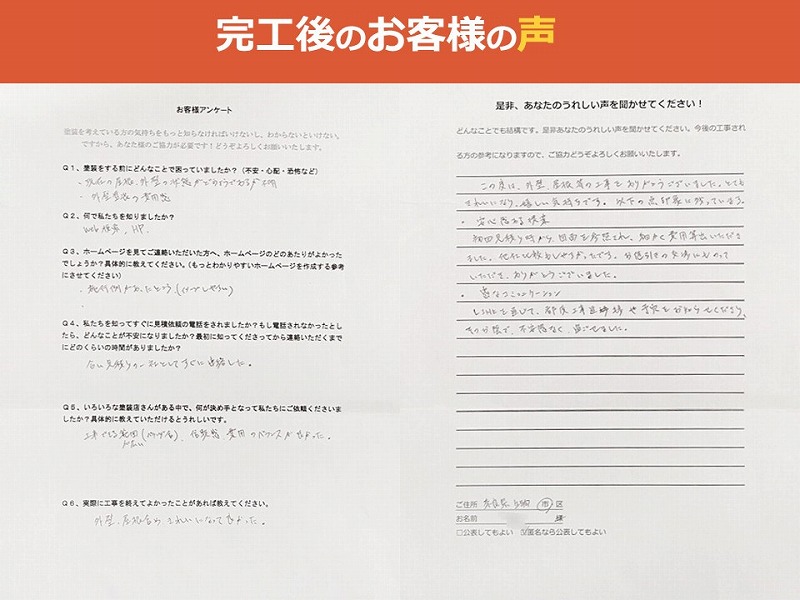 完工後のお客様の声
お客様アンケート
塗装を考えている方の気持ちをもっと知らなければいけないし、わからないといけない。
ですから、あなた様のご協力が必要です！どうぞよろしくお願いいたします。
Q１、塗装をする前にどんなことで困っていましたか？（不安・心配・恐怖など）
・現在の屋根、外壁の状態がどのようであるか不明
・外壁塗装の費用感
Q２、何で私たちを知りましたか？
Web検索、HP
Q３、ホームページを見てご連絡いただいた方へ、ホームページのどのあたりがよかった
でしょうか？具体的に教えてください。（もっとわかりやすいホームページを作成する参考
にさせてください）
・施行例があったところ（イメージしやすい）
Q４、私たちを知ってすぐに見積依頼の電話をされましたか？もし電話されなかったとし
たら、どんなことが不安になりましたか？最初に知ってくださってから連絡いただくまで
にどのくらいの時間がありましたか？
合い見積りの一社としてすぐに連絡した。
Q５、いろいろな塗装店さんがある中で、何が決め手となって私たちにご依頼くださいま
したか？具体的に教えていただけるとうれしいです。
工事できる範囲、信頼感、費用のバランスがよかった。
Q６、実際に工事を終えてよかったことがあれば教えてください。
外壁、屋根含め、きれいになってよかった。
是非、あなたのうれしい声を聞かせてください！
どんなことでも結構です。是非あなたのうれしい声を聞かせてください。今後の工事され
る方の参考になりますので、ご協力どうぞよろしくお願いいたします。
この度は、外壁、屋根等の工事をありがとうございました。とても
きれいになり、嬉しい気持ちです。以下の点印象に残っている。
・安心感ある
初回見積り時から、図面を参照され、細かく費用算出いただき
ました。他社比較もしやすかったです。
いただき、ありがとうございました。
・コミュニケーション
LINEを通して、都度工事進捗や予定をお知らせくださり、
その分で、不安感なく、過ごせました。
ご住所 奈良県 市 区
お名前 様
□公表してもよい ☑匿名なら公表してもよい